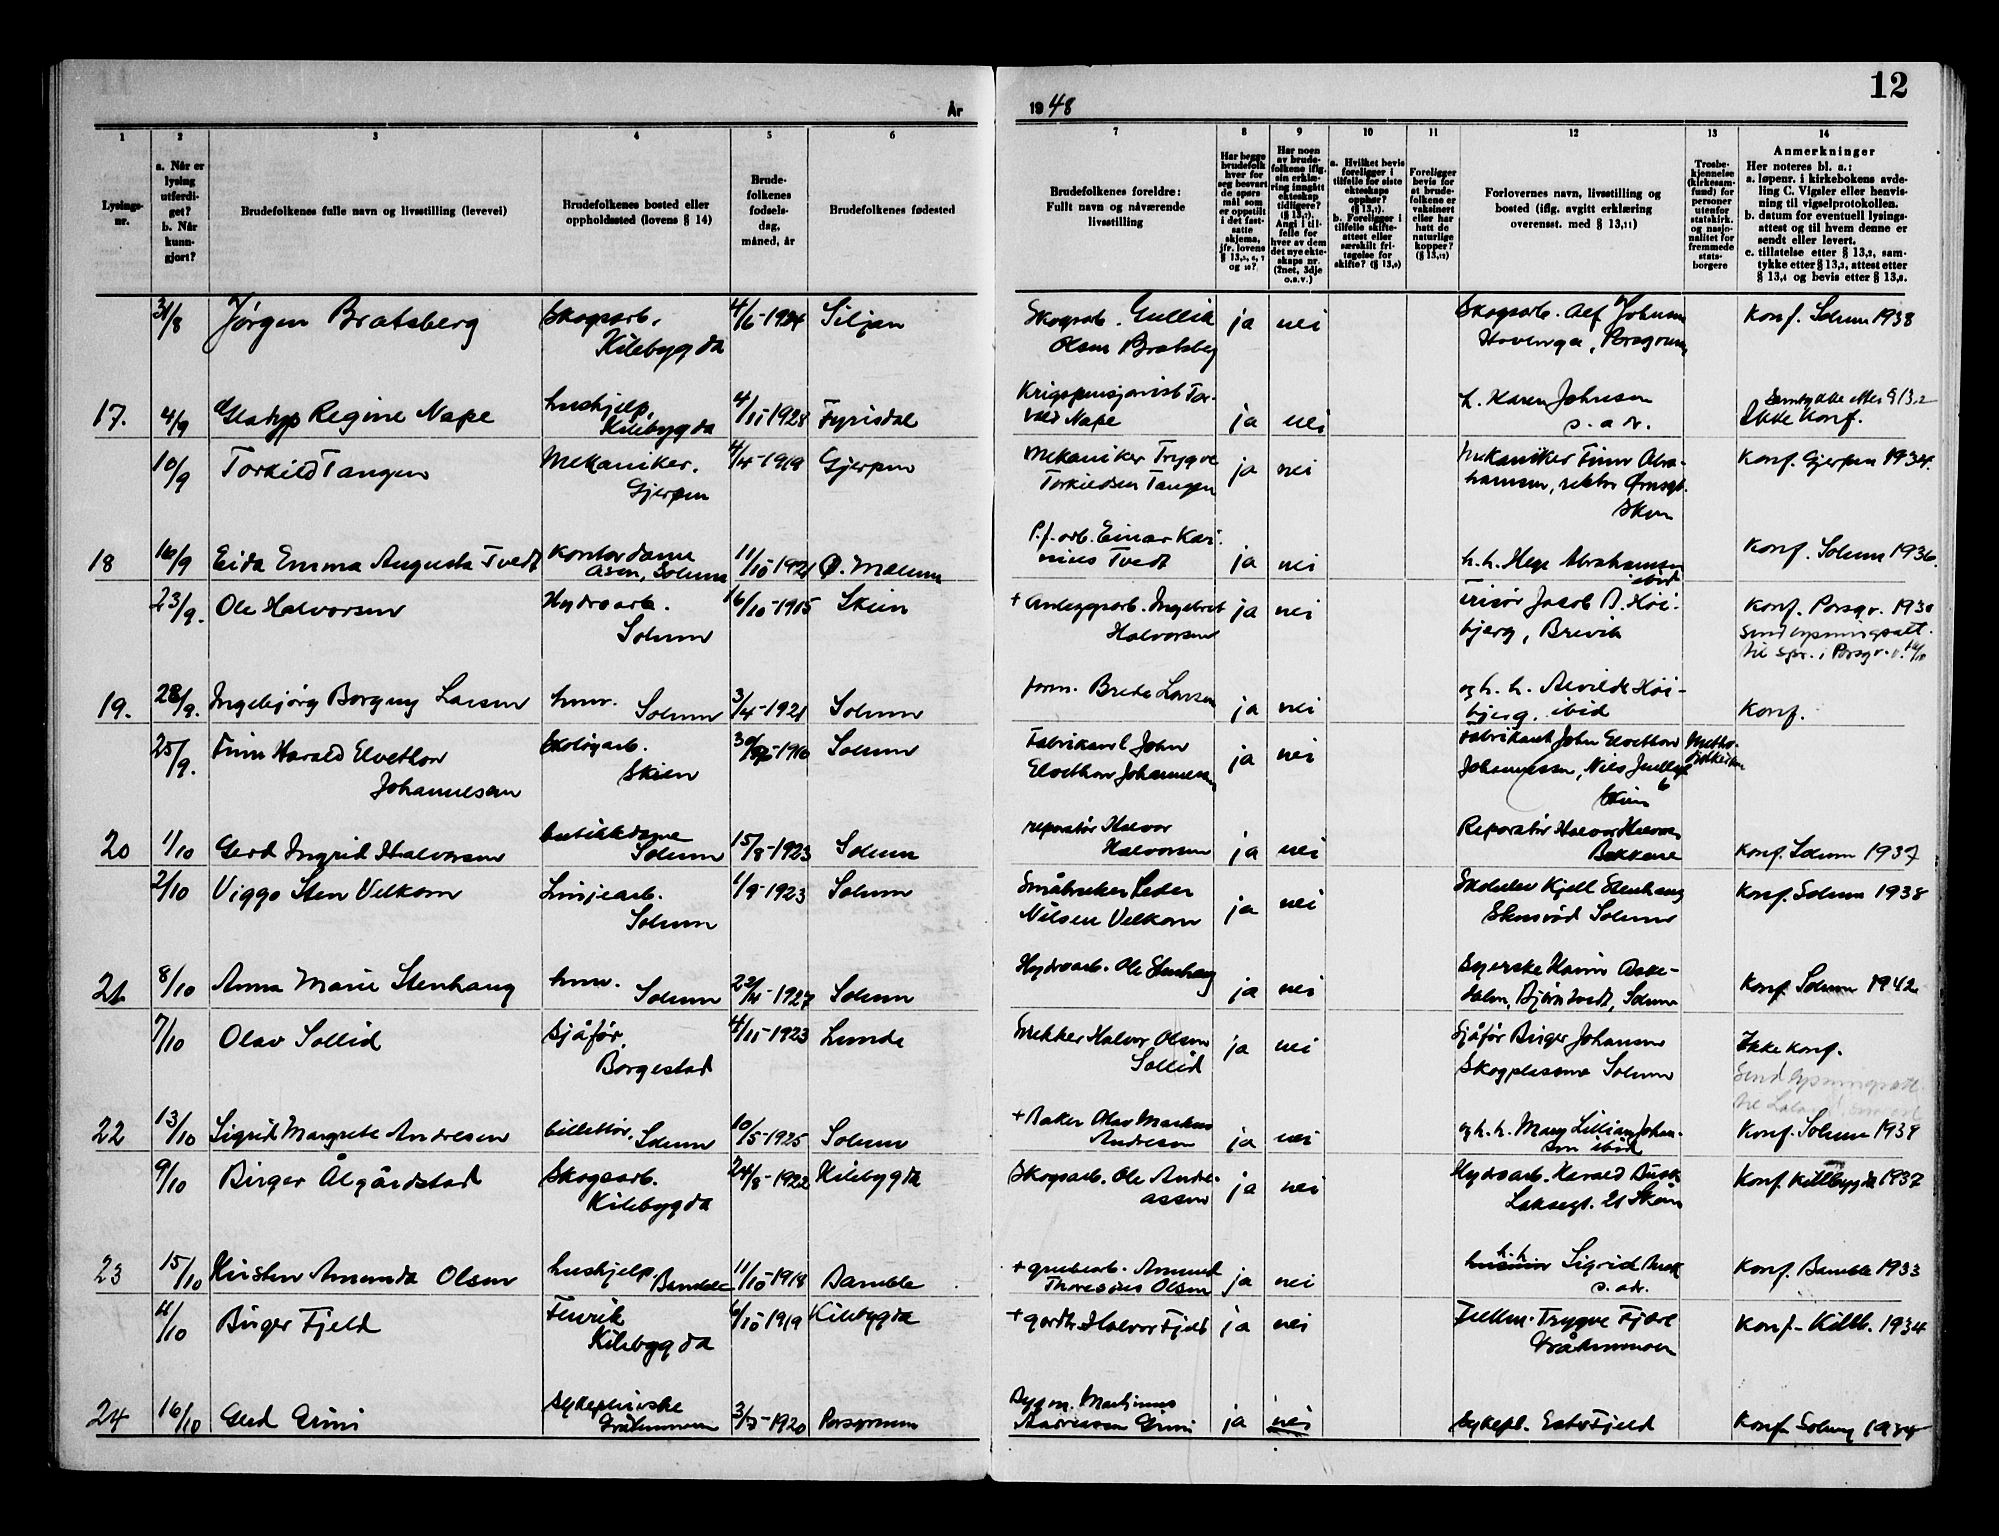 12
År
1948
1 2 3 4 5 6 7 8 9 10 11 12 13 14
Lysings-
nr.
a. Når er
lysing
utferdi-
get?
b. Når
kunn-
gjort?
Brudefolkenes fulle navn og livsstilling (levevei)
Brudefolkenes bosted eller
oppholdssted (lovens § 14)
Brude-
folkenes
fødsels-
dag,
måned, år
Brudefolkenes fødested
Brudefolkenes foreldre:
Fullt navn og nåværende
livsstilling
Har begge
brudefolk
hver for
seg besvart
de spørs-
mål som
er oppstilt
i det fast-
satte
skjema,
jfr. lovens
Har noen
av brude-
folkene iflg.
sin erklæ-
ring inngått
ekteskap
tidligere?
Angi i til-
felle for
hver av dem
det nye ekte-
skaps nr.
(2net, 3dje
o.s.v.)
a. Hvilket bevis
foreligger i
tilfelle for siste
ekteskaps
opphør?
b. Foreligger i
tilfelle skifte-
attest eller
særskilt fri-
tagelse for
skifte?
Foreligger
bevis for
at brude-
folkene er
vaksinert
eller har
hatt de
naturlige
kopper?
Forlovernes navn, livsstilling og
bosted (iflg. avgitt erklæring
overensst. med § 13,11)
Trosbe-
kjennelse
(kirkesam-
fund) for
personer
utenfor
statskirk.
og nasjo-
nalitet for
fremmede
stats-
borgere
Anmerkninger
Her noteres bl. a.:
a. løpenr. i kirkebokens avde-
ling C. Vigsler eller henvis-
ning til vigselprotokollen.
b. datum for eventuell lysings-
attest og til hvem denne er
sendt eller levert.
c. tillatelse etter § 13,2, sam-
tykke etter § 13,3, attest etter
§ 13,4 og bevis etter § 13,8.
31/8 Jørgen Bratsberg Skogsarb. 4/6-1924 Siljan Skogsarb. Gullik ja nei Skogsarb. Alf Johnsen Konf. Solum 1938
Kilebygda Olsen Bratsberg Hovenga, Porsgrunn
17. 4/9 Gladys Regine Nape hushjelp, 4/11-1928 Fyrisdal Krigspensjonist Tor- ja nei h. Karen Johnsen Samtykke etter § 13,2
Kilebygda vald Nape s. adr. Ikke Konf.
10/9 Torkild Tangen Mekaniker. 4/4-1919 Gjerpen Mekaniker Trygve ja nei Mekaniker Finn Abra- Konf. Gjerpen 1934.
Gjerpen Torkildsen Tangen hamsen,
Skien
18 16/9 Eida Emma Augusta Tvedt Kontordame 11/10-1921 Ø. Mælum P.f. arb. Einar Kari- ja nei h. h. Abrahamsen Konf. Solum 1936.
Solum nius Tvedt ibid
23/9. Ole Halvorsen Hydroarb. 16/10-1915 Skien + Anleggsarb. Ingebret ja nei Frisør Jacob B. Høi- Konf. Porsgr. 1930
Solum Halvorsen bjerg, Brevik Send lysningsatt.
til spr. i Porsgr.
19. 28/9. Ingebjørg Borgny Larsen husv. 3/4-1921 Solum form. Brede Larsen ja nei og h. h. Alvilde Høi- Konf.
Solum bjerg. ibid
25/9. Finn Harald Elvethon Skotøyarb. 1916 Solum Fabrikant John ja nei Fabrikant John Elvethon Metho-
Johannessen Skien Elvethon Johannessen Johannessen, Nils Juels gt
Skien
20 1/10 Gerd Ingrid Halvorsen butikkdame 15/8-1923 Solum reparatør Halvor ja nei Reparatør Halvor Konf. Solum 1937
Solum Halvorsen Bakkene
2/10 Viggo Sten Velkom Linjearb. 1/9-1923 Solum Småbruker Peder ja nei Kjell Stenhaug Konf. Solum 1938
Solum Nilsen Velkom Solum
21. 8/10 Anna Marie Stenhaug husv. 1927 Solum Hydroarb. Ole Stenhaug ja nei Syerske Karin Aske- Konf. Solum 1942
Solum dalen, Solum
7/10 Olav Sollid Sjåfør. 4/11-1923 Lunde Snekker Halvor Olsen ja nei Sjåfør Birger Johansen Ikke Konf.
Borgestad Sollid Skogplassen Solum Send lysningsatt.
22 13/10 Sigrid Margrete Andresen billettør. 10/5-1925 Solum + Baker Olav Markus ja nei og h. h. Mary Lillian Johan- Konf. Solum 1939
Solum Andresen sen ibid
9/10 Birger Ålgårdstad Skogsarb. 24/8-1922 Kilebygda Skogsarb. Ole Andre- ja nei Hydroarb. Harald Busk Konf. Killbygda 1937
Kilebygda assen Laksegt. 21 Skien
23 15/10 Kirsten Amunda Olsen hushjelp. 11/10-1918 Bamble + grubearb. Ammund ja nei h. h. Sigrid Busk Konf. Bamble 1933
Bamble Olsen s. adr.
11/10 Birger Fjeld Fenrik 6/10-1919 Kilebygda + gardbr. Halvor Fjeld ja nei Trygve Fjære Konf. Killb. 1934
Kilebygda Gråtenmoen
24 16/10 Gerd Grini Sykepleierske 1920 Porsgrunn Bygm. Martinus ja nei Sykepl. Ester Fjeld Konf. Solum 1934
Gråtenmoen Grini